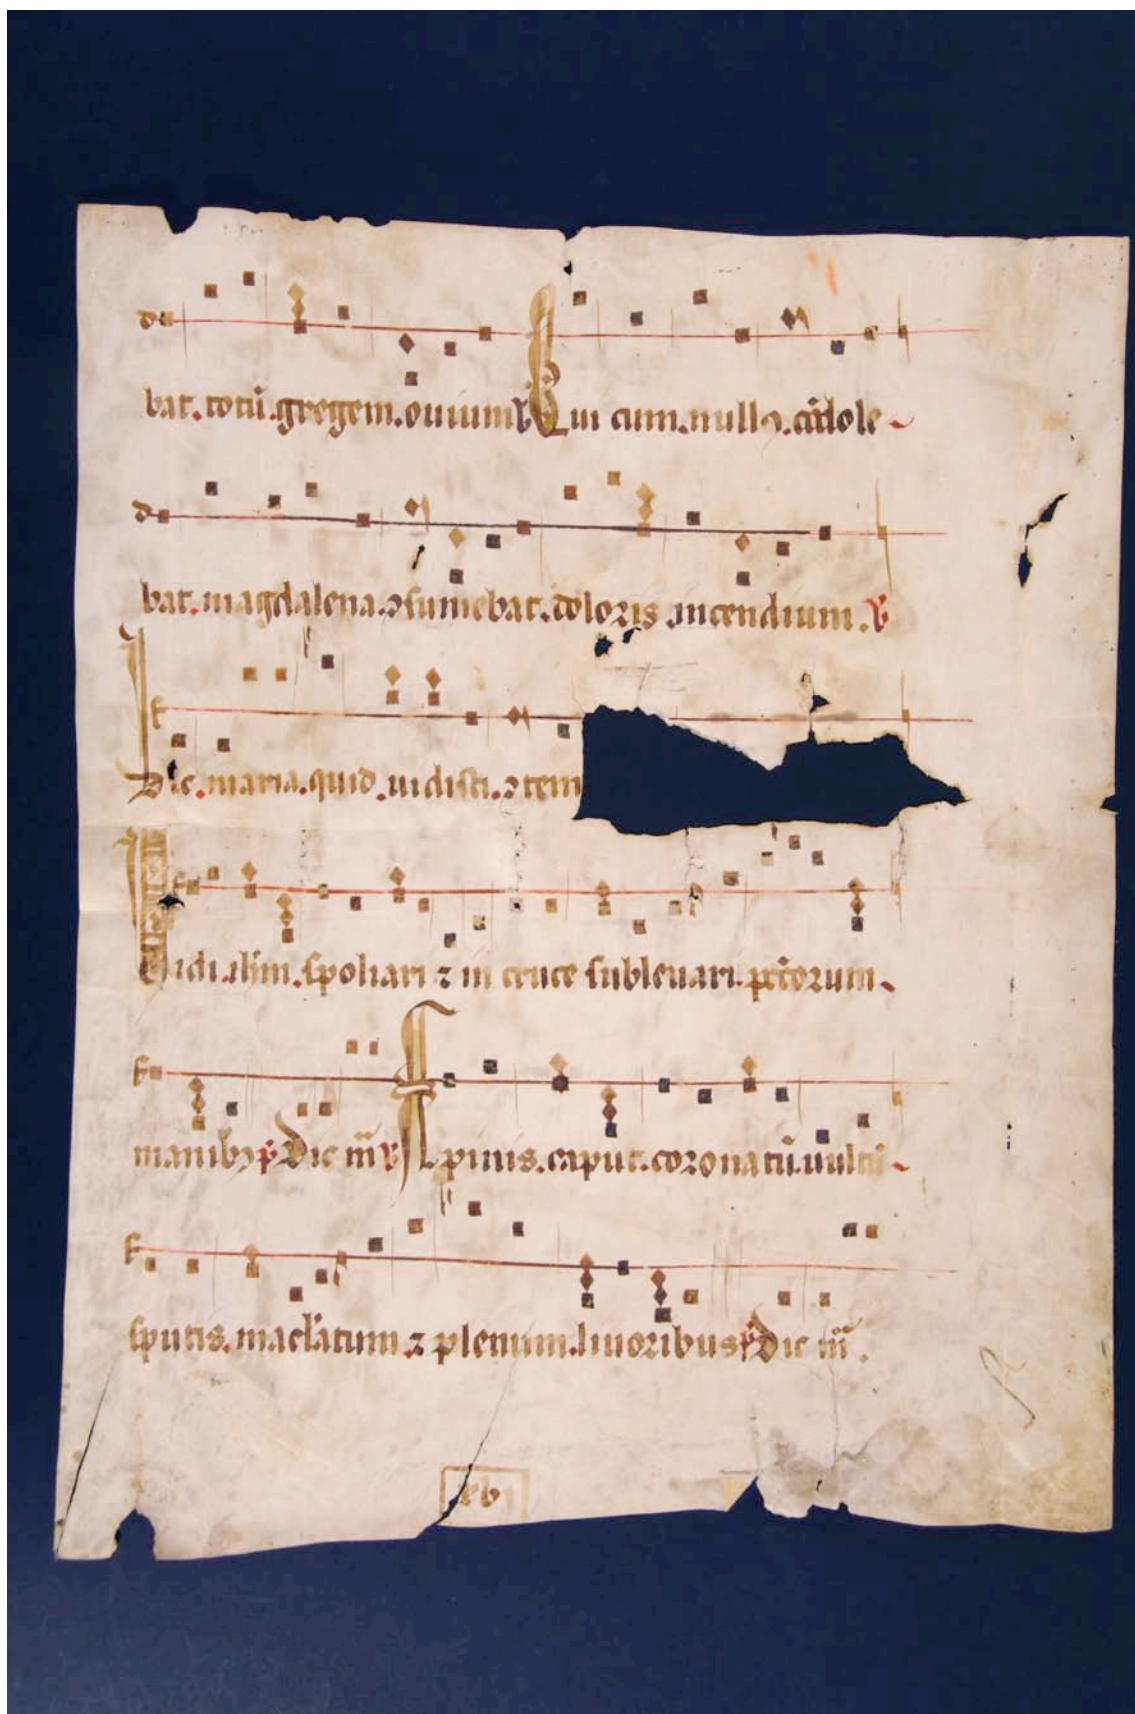 bat. totũ. gregem. ouium ℣ Qui cum. nullꝯ. cõdole
bat. magdalena. ⁊ sumebat. doloris. incendium. ℣
Dic. maria. quid. uidisti. ⁊tem
Uidi. ihm. spoliari ⁊ in cruce subleuari. pctorum
manibꝫ ℟ Dic m̃ ℣ Spinis. caput. coronatũ. uultũ
sputis. maclatum. ⁊ plenum. liuoribus ℟ Dic m̃.